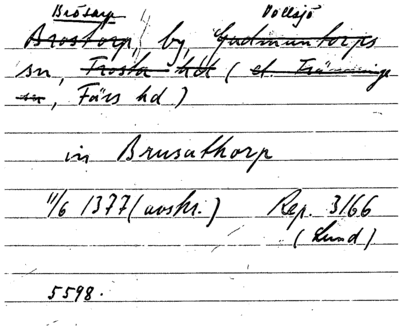 Brösarp Vollsjö
Brostorp, by, Gudmuntorps
sn, Frosta hd (el. Tranninge
sn, Färs hd)
in Brusathorp
11/6 1377 (avskr.) Rep. 3166
(Lund)
5598.